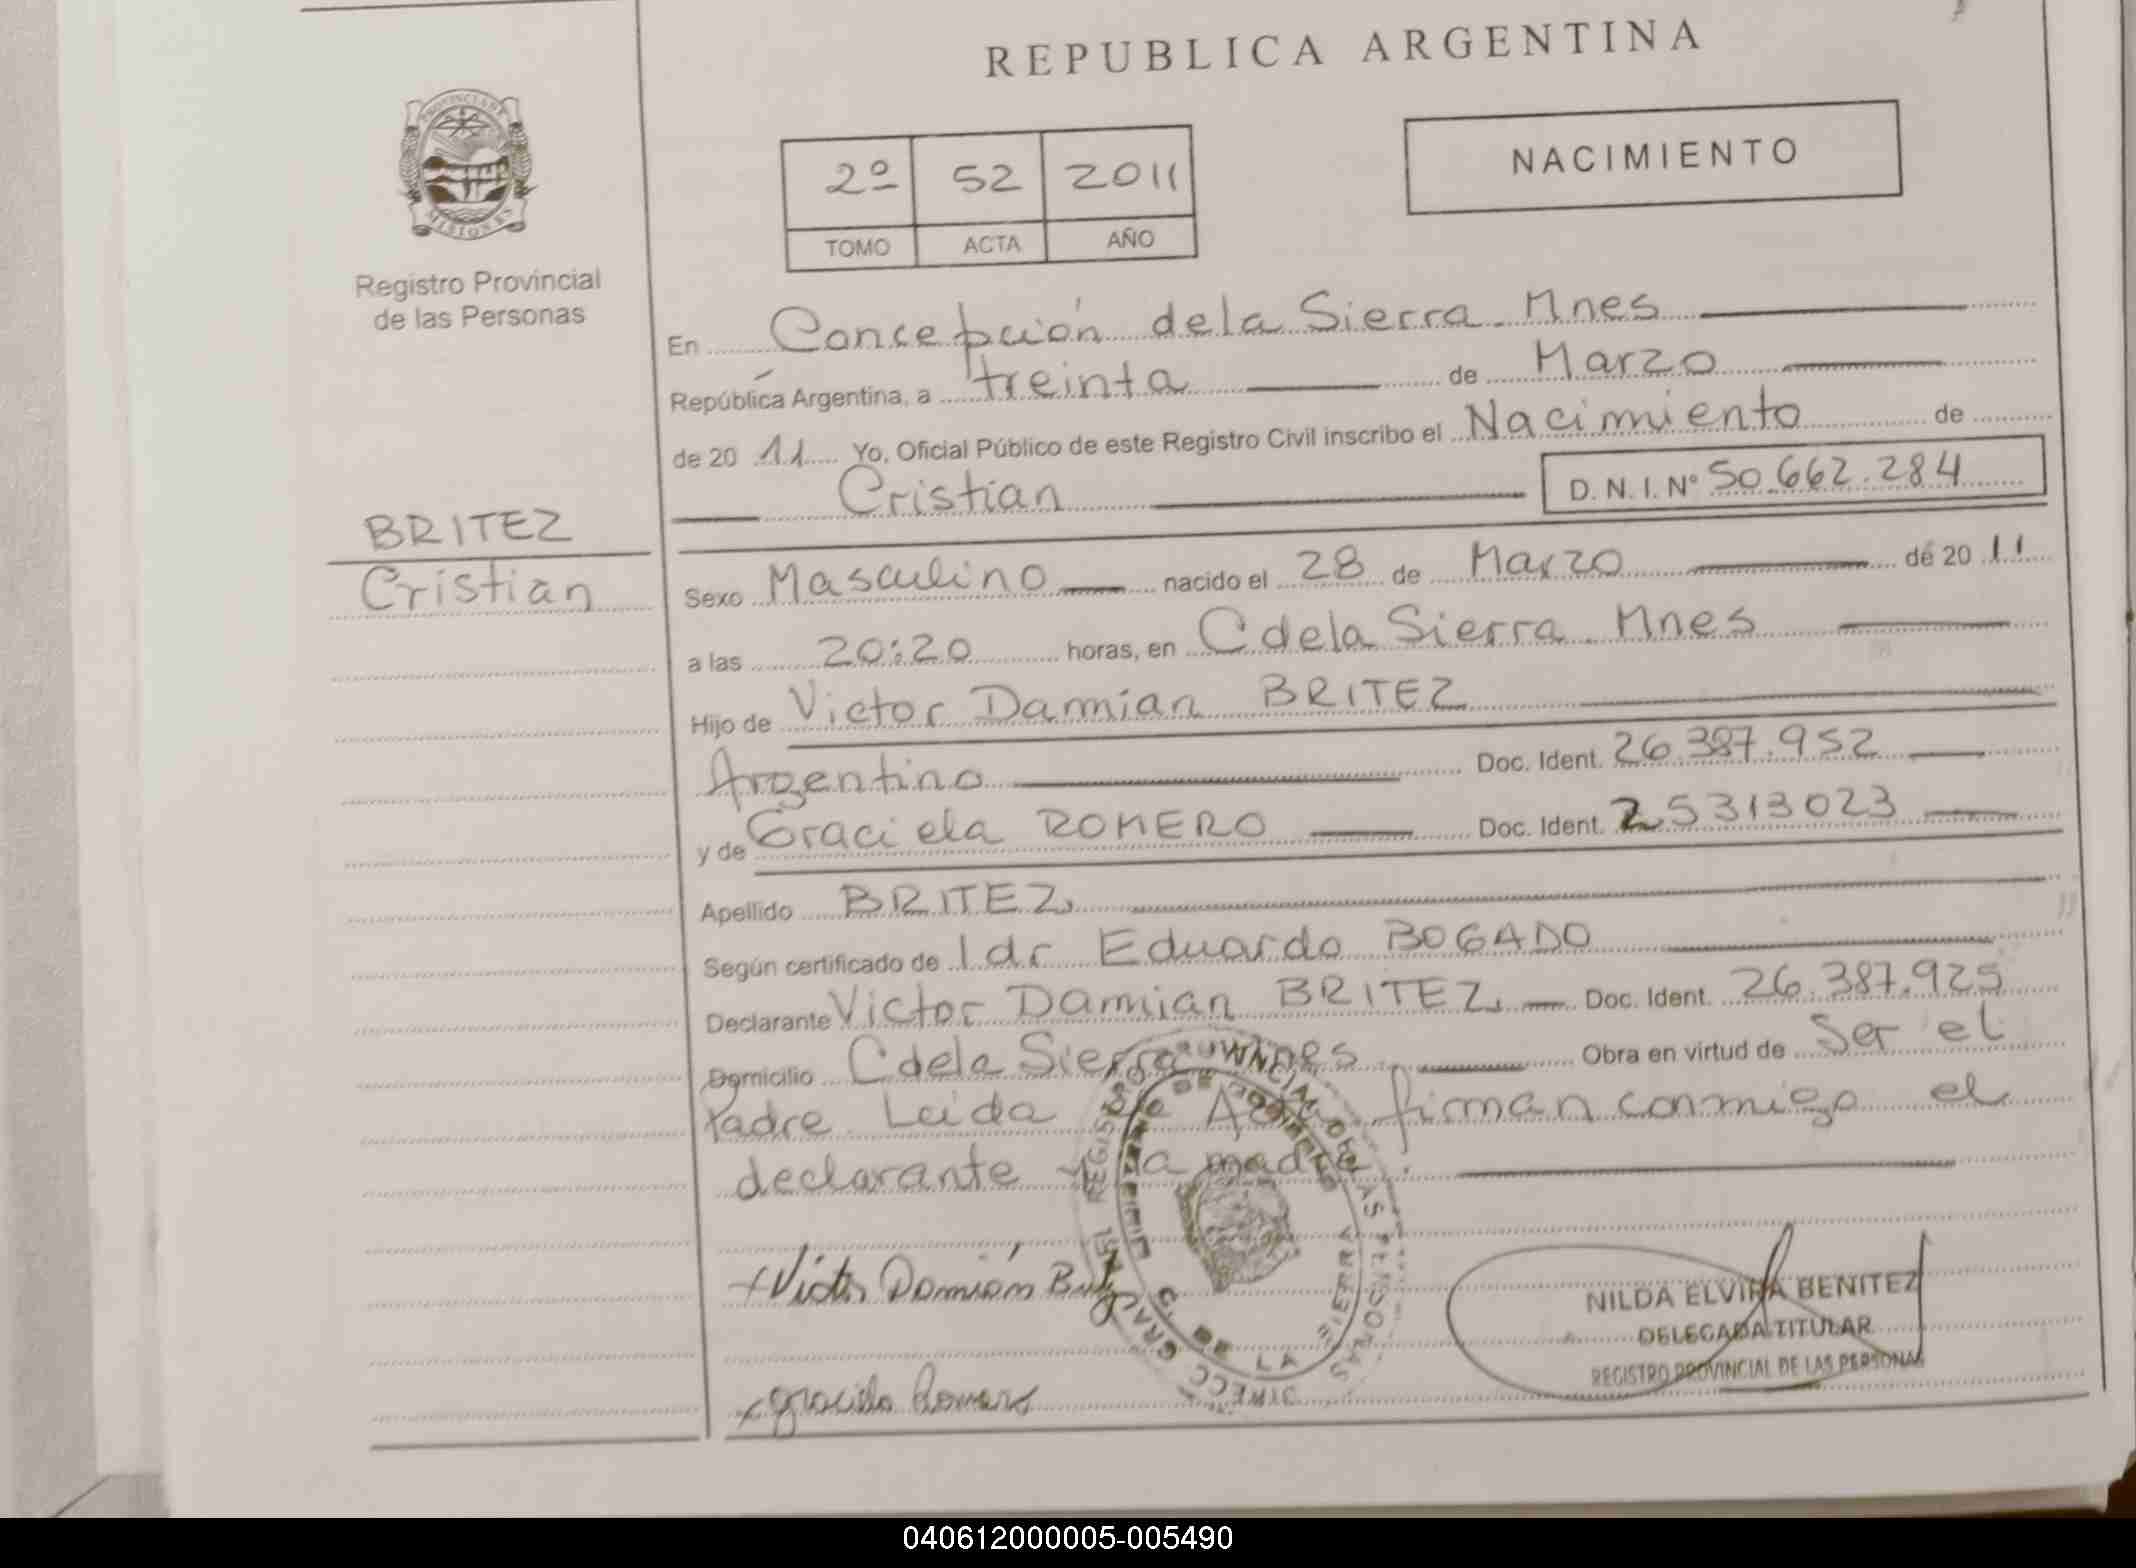 REPUBLICA ARGENTINA
PROVINCIA DE
MISIONES
Registro Provincial
de las Personas
2º 52 2011
TOMO ACTA AÑO
NACIMIENTO
En Concepción dela Sierra. Mnes
República Argentina, a treinta de Marzo
de 20 11 Yo, Oficial Público de este Registro Civil inscribo el Nacimiento de
Cristian D.N.I. Nº 50.662.284
BRITEZ
Cristian
Sexo Masculino nacido el 28 de Marzo de 20 11
a las 20:20 horas, en C dela Sierra. Mnes
Hijo de Victor Damian BRITEZ
Argentino Doc. Ident. 26.387.952
y de Graciela ROMERO Doc. Ident. 25313023
Apellido BRITEZ
Según certificado de 1 dr Eduardo BOGADO
Declarante Victor Damian BRITEZ Doc. Ident. 26.387.925
Domicilio C dela Sierra Mnes Obra en virtud de Ser el
Padre Leida Acta firman conmigo el
declarante y la madre.
Victor Damián
Graciela Romero
NILDA ELVIRA BENITEZ
DELEGADA TITULAR
REGISTRO PROVINCIAL DE LAS PERSONAS
040612000005-005490